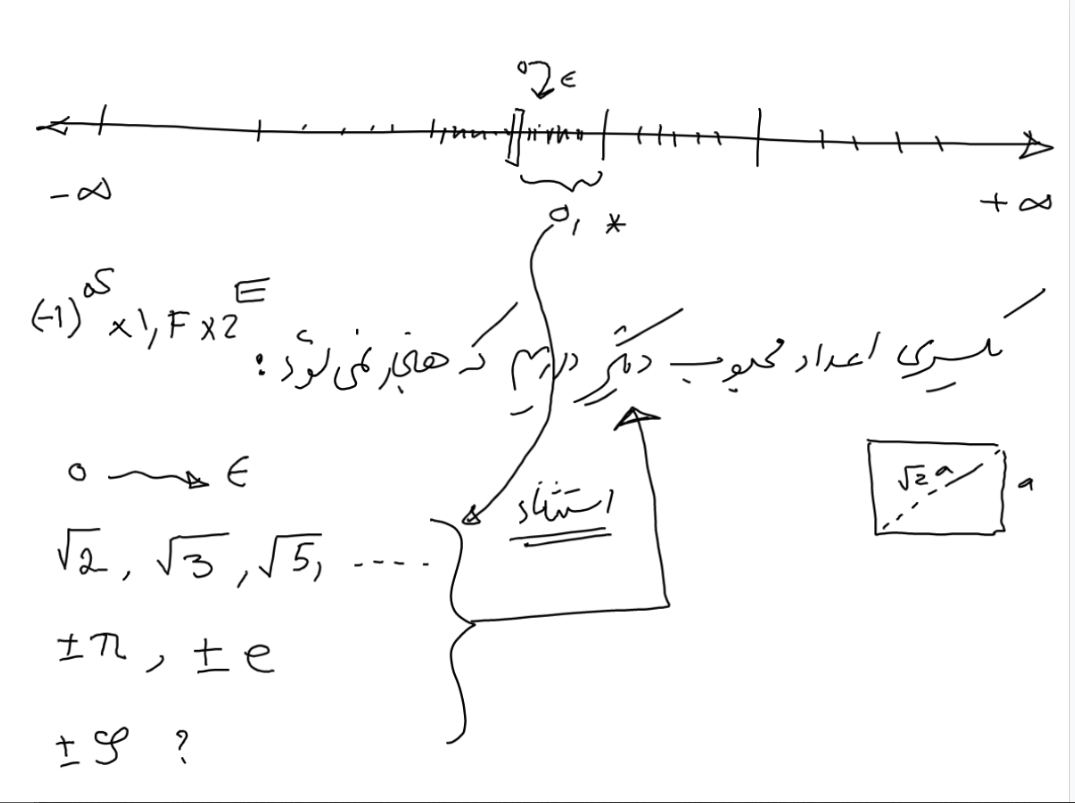 0 ϵ
-∞ +∞
0, *
(-1)^S × 1, F × 2^E
یکسری اعداد محبوب دیگر داریم که هنجار نمی شود :
0 → ϵ
√2 a a
استثناء
√2 , √3 , √5, ....
±π , ± e
± φ ?